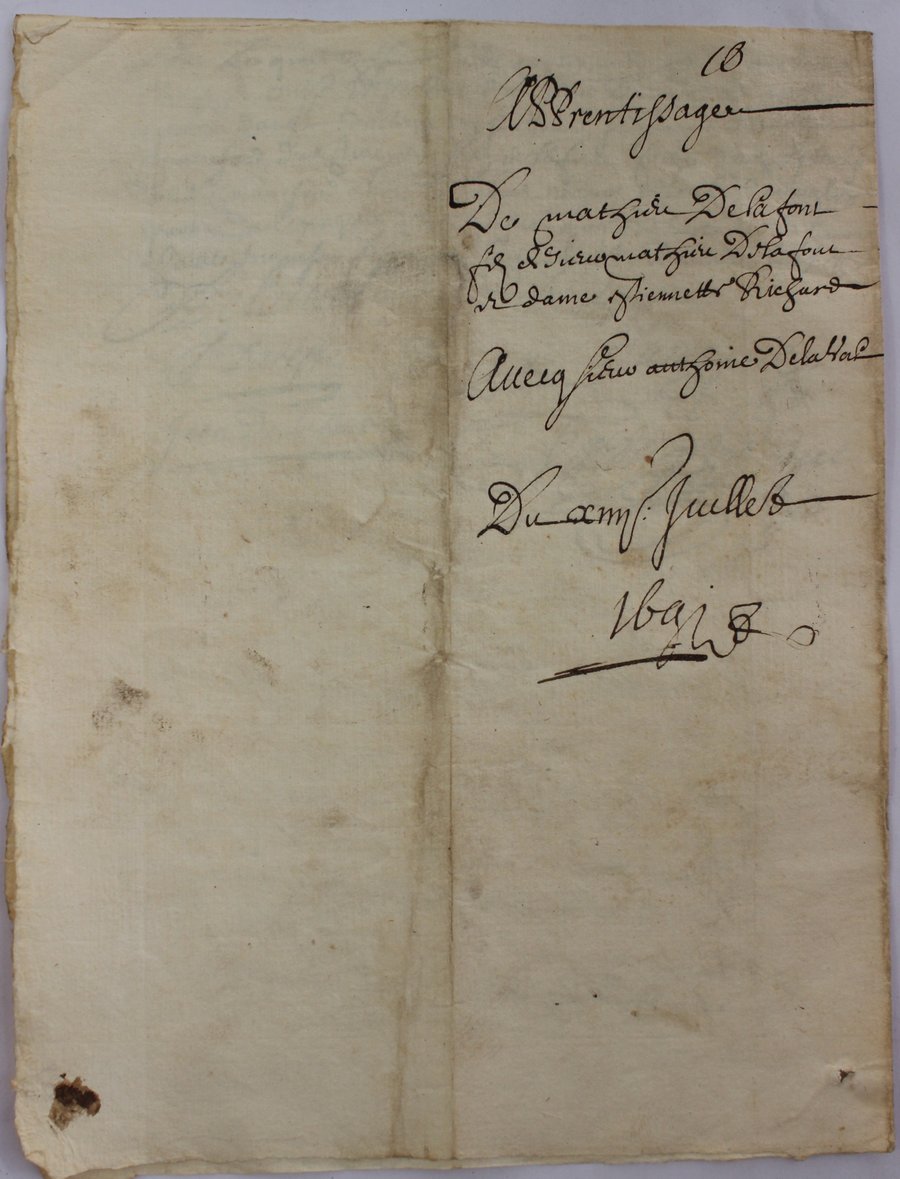 18
Apprentissage
De mathieu Delafont
filz de sieur mathieu Delafont
et dame estiennette Richard
Avecq sieur anthoine Delaval
Du xiiije. Juillet
1691